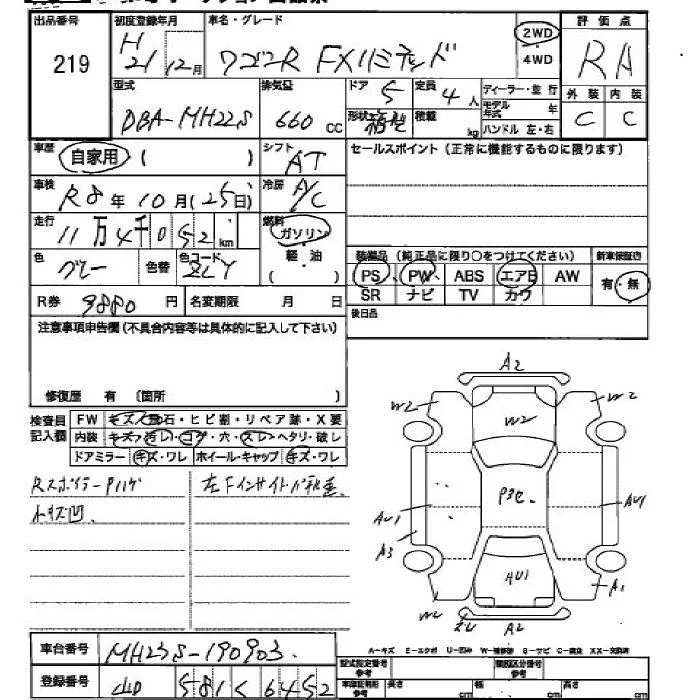 出品番号 初度登録年月 車名・グレード 2WD 4WD 評価点
219 H 21年 12月 ワゴンR FXリミテッド RA
外装 内装
C C
型式 排気量 ドア 5 定員 4人 ディーラー・並行
DBA-MH22S 660cc 形状 箱型 積載 kg モデル年式 年
ハンドル 左・右
車歴 自家用 ( ) シフト AT セールスポイント (正常に機能するものに限ります)
車検 R8年10月(25日) 冷房 A/C
走行 11万4千052km 燃料 ガソリン 軽・油 ( )
色 グレー 色替 色コード ZLY
装備品 (純正品に限り○をつけてください) 新車保証書
PS PW ABS エアB AW 有・無
SR ナビ TV カワ
R券 9880円 名変期限 月 日 後日品
注意事項申告欄(不具合内容等は具体的に記入して下さい)
修復歴 有 (箇所 )
検査員記入欄 FW キズ・飛石・ヒビ割・リペア跡・X要
内装 キズ・汚レ・コゲ・穴・スレ・ヘタリ・破レ
ドアミラー キズ・ワレ ホイール・キャップ キズ・ワレ
Rスポイラー Pハゲ
小キズ凹
A2
W2 W2 W2
P3セ
AU1 AU1
A3
AU1 A1
W2 A2
A-キズ E-エクボ U-凹み W-補修跡 S-サビ C-腐食 XX-交換済
車台番号 MH23S-190903
型式指定番号 参考 類別区分番号 参考
登録番号 581 6452
長さ cm 幅 cm 高さ cm